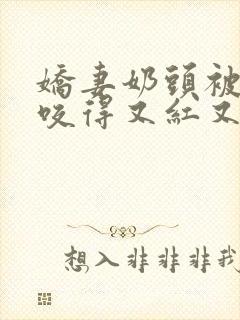 嬌妻奶頭被
咬得又紅又
想入非非非我